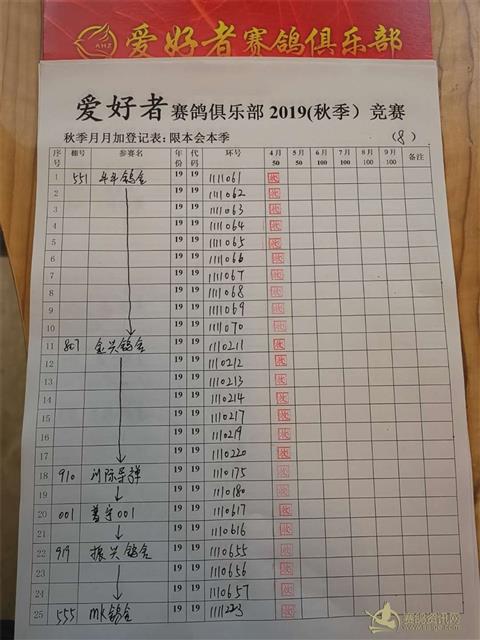 爱好者赛鸽俱乐部
爱好者赛鸽俱乐部2019(秋季）竞赛
秋季月月加登记表：限本会本季 （8）
序号 棚号 参赛名 年份 代码 环号 4月50 5月50 6月100 7月100 8月100 9月100 备注
1 551 牛牛鸽舍 19 19 1111061 收
2 19 19 1111062 收
3 19 19 1111063 收
4 19 19 1111064 收
5 19 19 1111065 收
6 19 19 1111066 收
7 19 19 1111067 收
8 19 19 1111068 收
9 19 19 1111069 收
10 19 19 111070 收
11 807 金兴鸽舍 19 19 1110211 收
12 19 19 1110212 收
13 19 19 1110213 收
14 19 19 1110214 收
15 19 19 1110217 收
16 19 19 1110219 收
17 19 19 1110220 收
18 910 洲际导弹 19 19 1110175 收
19 19 1110180 收
20 001 普宁001 19 19 1110617 收
21 19 19 1110616 收
22 919 振兴鸽舍 19 19 1110655 收
19 19 1110656 收
24 19 19 1110657 收
25 555 MK鸽舍 19 19 1111223 收
赛鸽资讯网